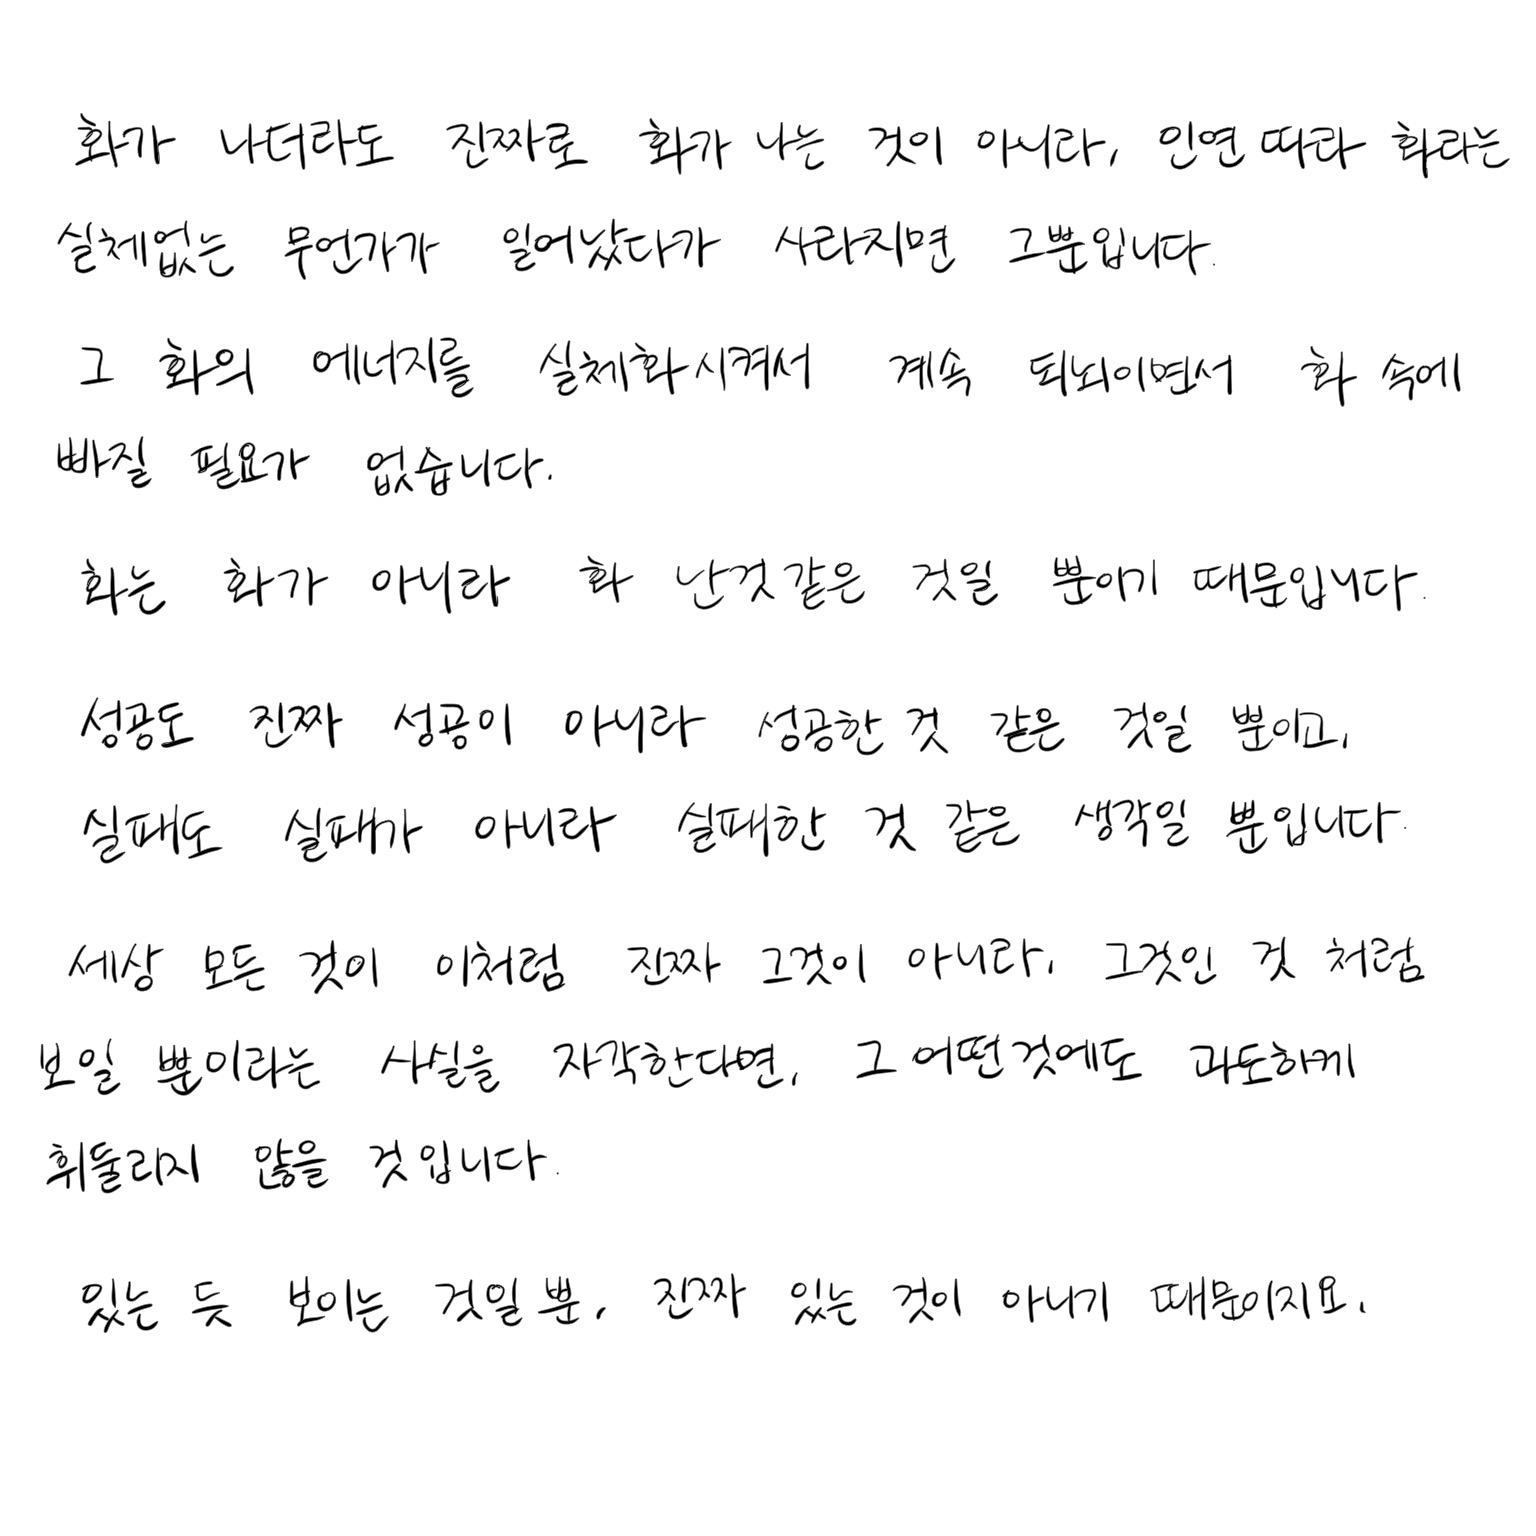 화가 나더라도 진짜로 화가 나는 것이 아니라, 인연 따라 화라는
실체없는 무언가가 일어났다가 사라지면 그뿐입니다.
그 화의 에너지를 실체화시켜서 계속 되뇌이면서 화 속에
빠질 필요가 없습니다.
화는 화가 아니라 화 난것같은 것일 뿐이기 때문입니다.
성공도 진짜 성공이 아니라 성공한 것 같은 것일 뿐이고,
실패도 실패가 아니라 실패한 것 같은 생각일 뿐입니다.
세상 모든 것이 이처럼 진짜 그것이 아니라, 그것인 것 처럼
보일 뿐이라는 사실을 자각한다면, 그 어떤것에도 과도하게
휘둘리지 않을 것입니다.
있는 듯 보이는 것일 뿐, 진짜 있는 것이 아니기 때문이지요.